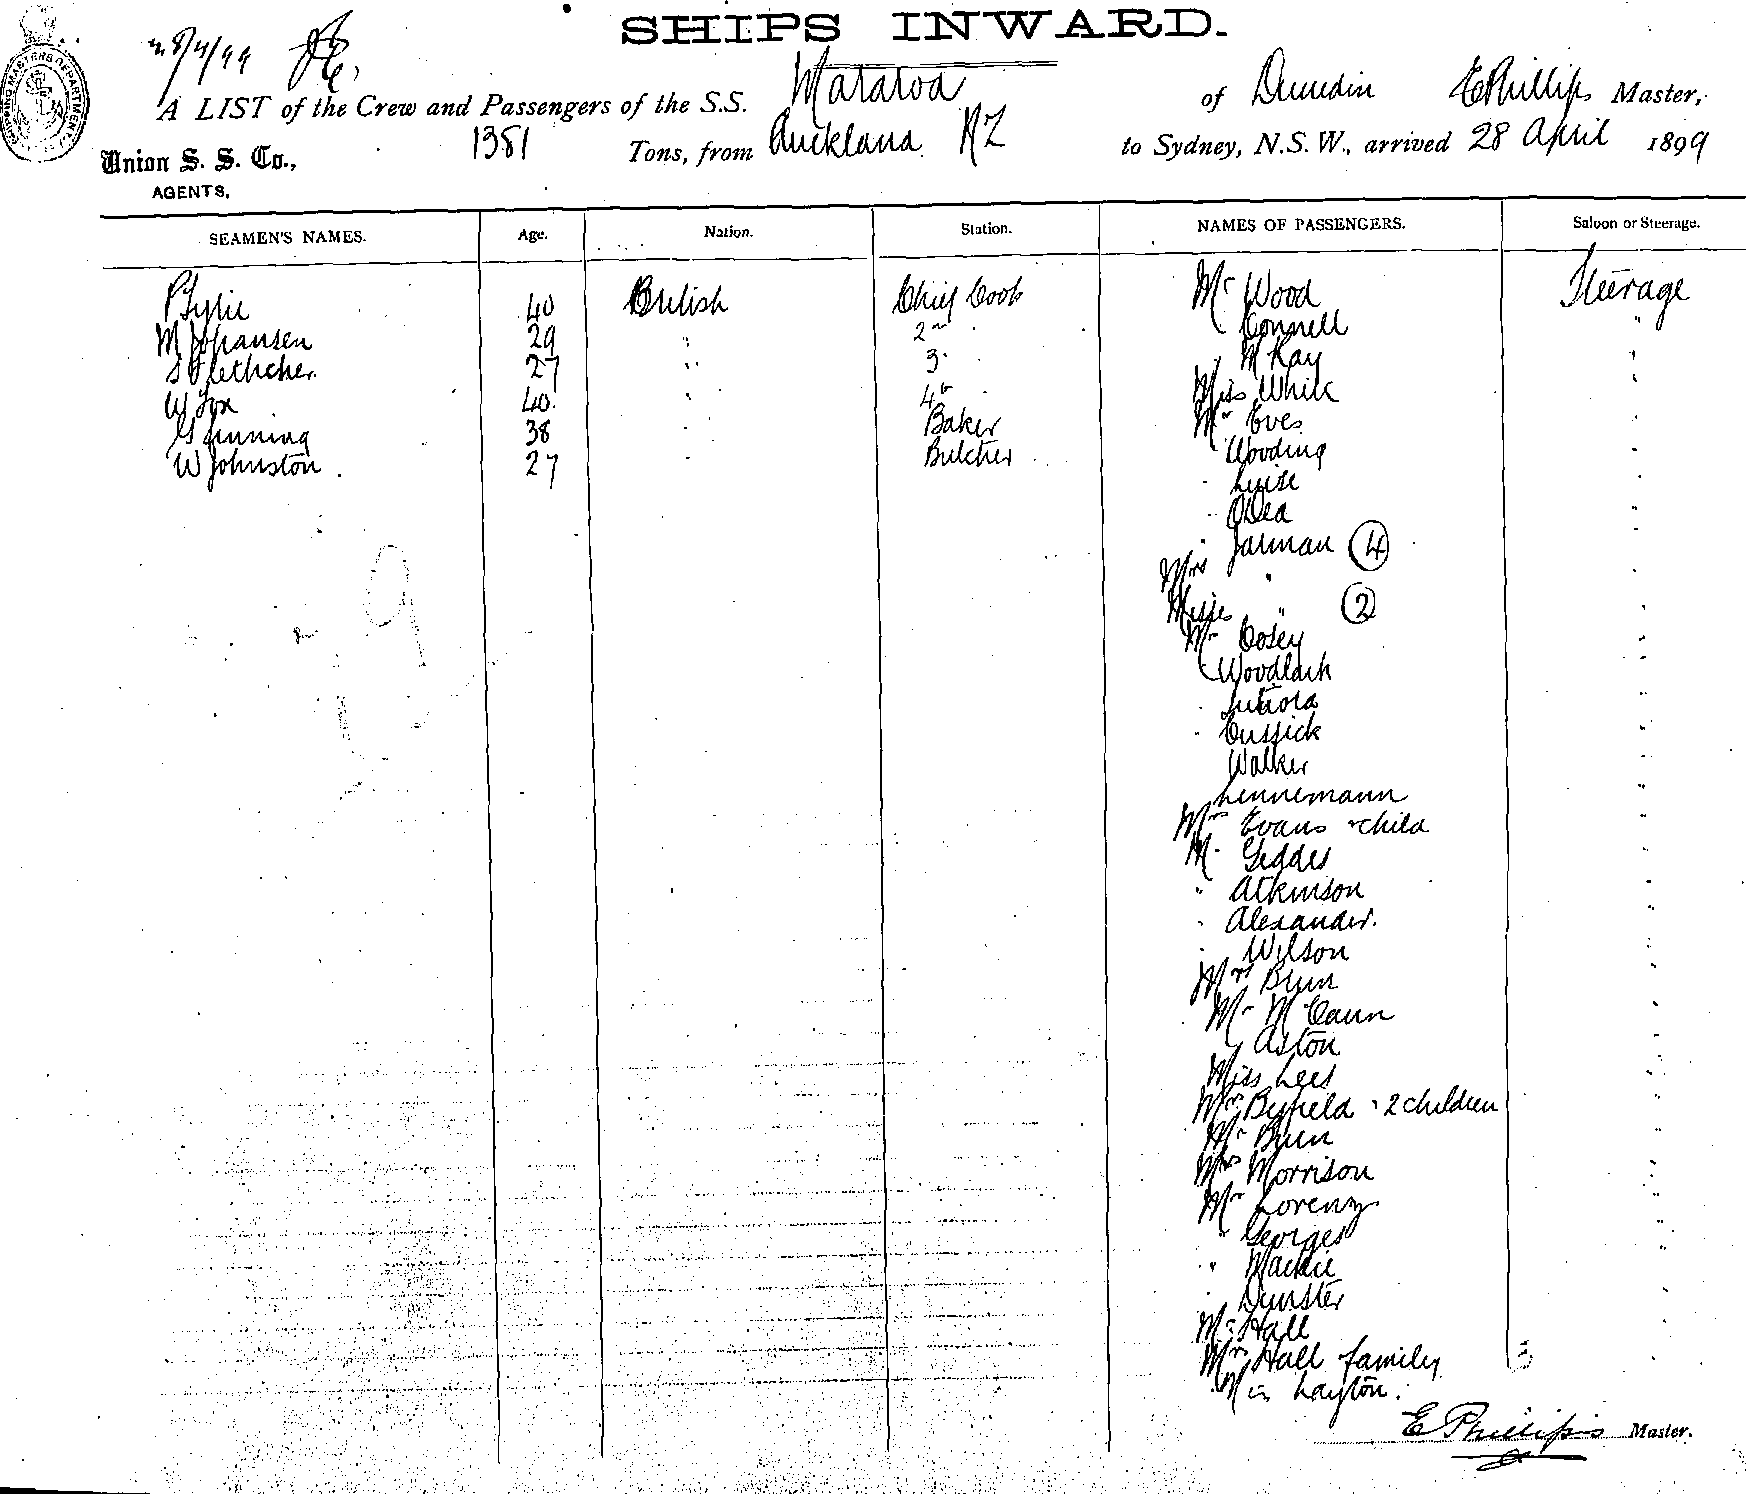 SHIPS INWARD.
28/4/99
A LIST of the Crew and Passengers of the S.S. Mararoa of Dunedin E Phillips Master,
Union S. S. Co., 1381 Tons, from Auckland NZ to Sydney, N.S.W., arrived 28 April 1899
AGENTS,
SEAMEN'S NAMES. Age. Nation. Station. NAMES OF PASSENGERS. Saloon or Steerage.
P Pyne 40 British Chief Cook Mr Wood Steerage
M Johansen 29 " 2nd Connell "
S Flethcher 27 " 3 " McKay "
W Fox 40 " 4th Miss White "
G Dinning 38 " Baker Mr Eves "
W Johnston 27 " Butcher " Wooding "
" Luise "
" ODea "
" Jarman 4 "
Mrs " "
Misses " 2 "
Mr Cosey "
Woodlark "
" "
" Cussick "
Walker "
Lennemann "
Mrs Evans & child "
Mr Geddes "
" Atkinson "
" Alexander. "
" Wilson "
Mrs Byrn "
Mr McCann "
" Aston "
Miss Lees "
Mrs Byfield & 2 children "
Mr Byrn "
Mrs Morrison "
Mr Lorenz "
" Georges "
" Mackie "
" Dunster "
Mr Hall "
Mrs Hall family 3 "
Miss Layton. "
E Phillips Master.